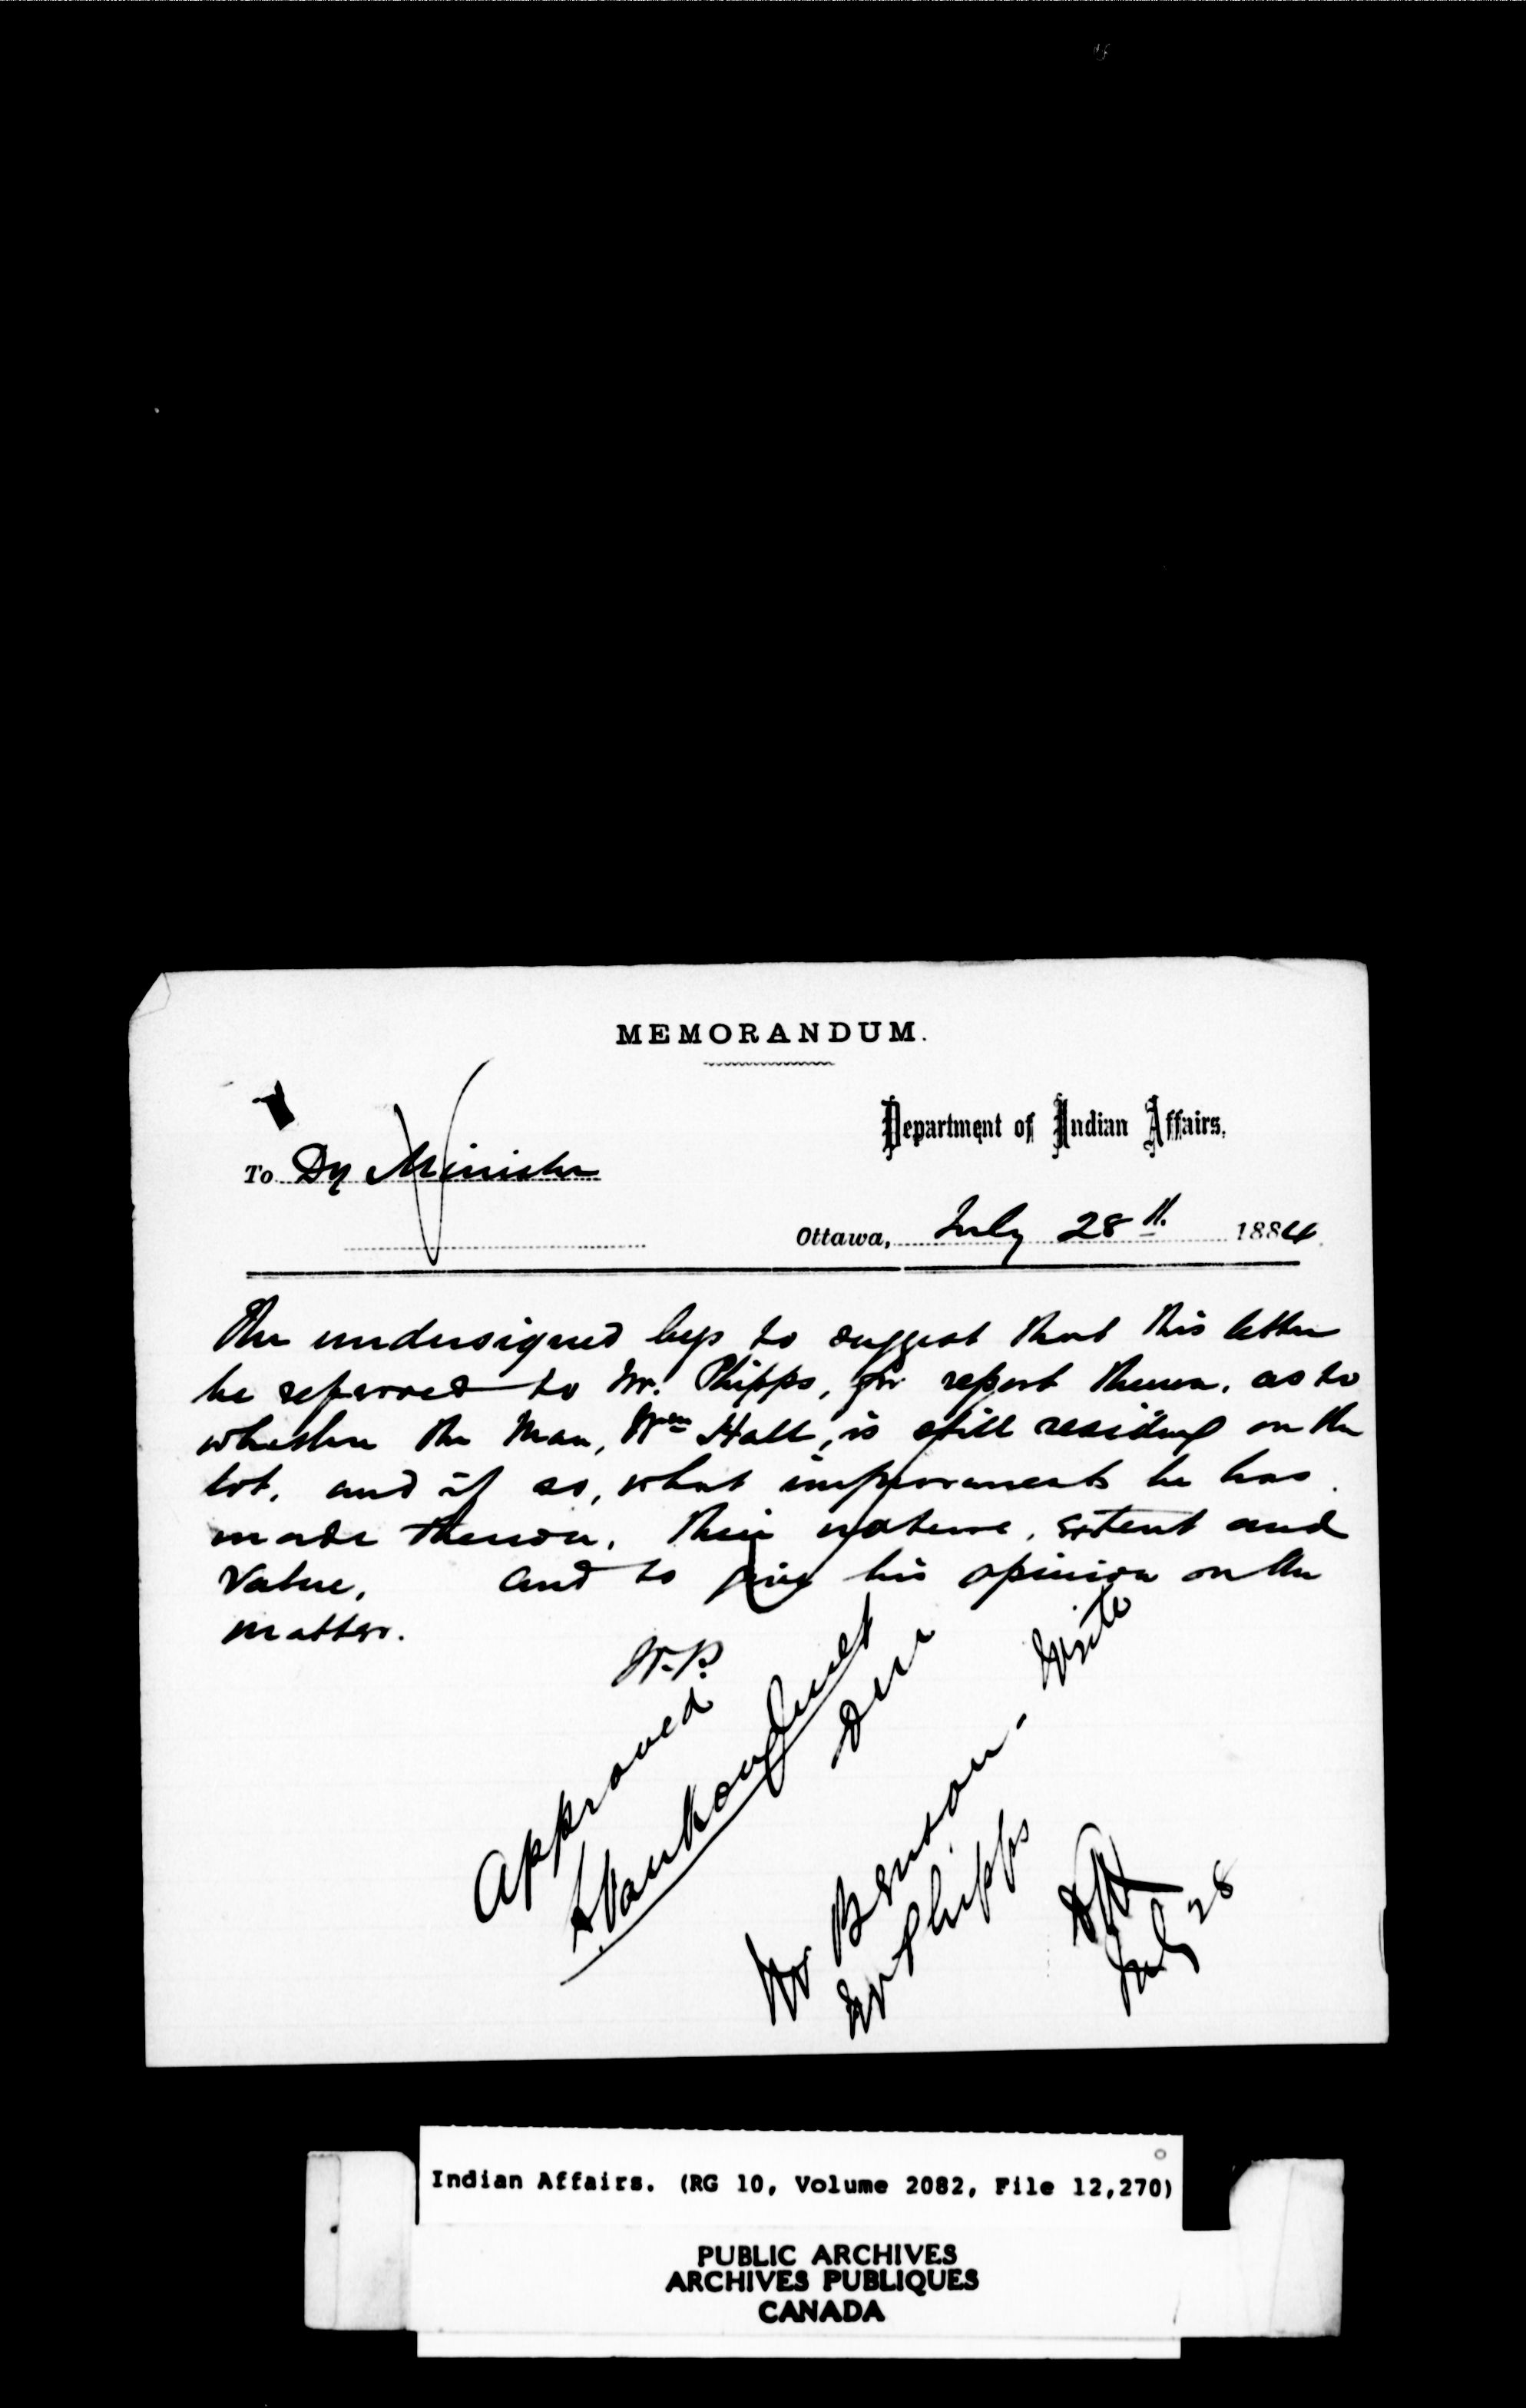 MEMORANDUM.
Department of Indian Affairs,
To Dy Minister
Ottawa, July 28th 1884
The undersigned begs to suggest that this letter
be referred to Mr. Phipps, for report thereon, as to
whether the man, Wm Hall, is still residing on the
lot, and if so, what improvements he has
made thereon, their nature, extent and
value, and to give his opinion on the
matter.
Approved
L Vankoughnet
Mr Benson - Write
Mr Phipps
July 28
Indian Affairs. (RG 10, Volume 2082, File 12,270)
PUBLIC ARCHIVES
ARCHIVES PUBLIQUES
CANADA